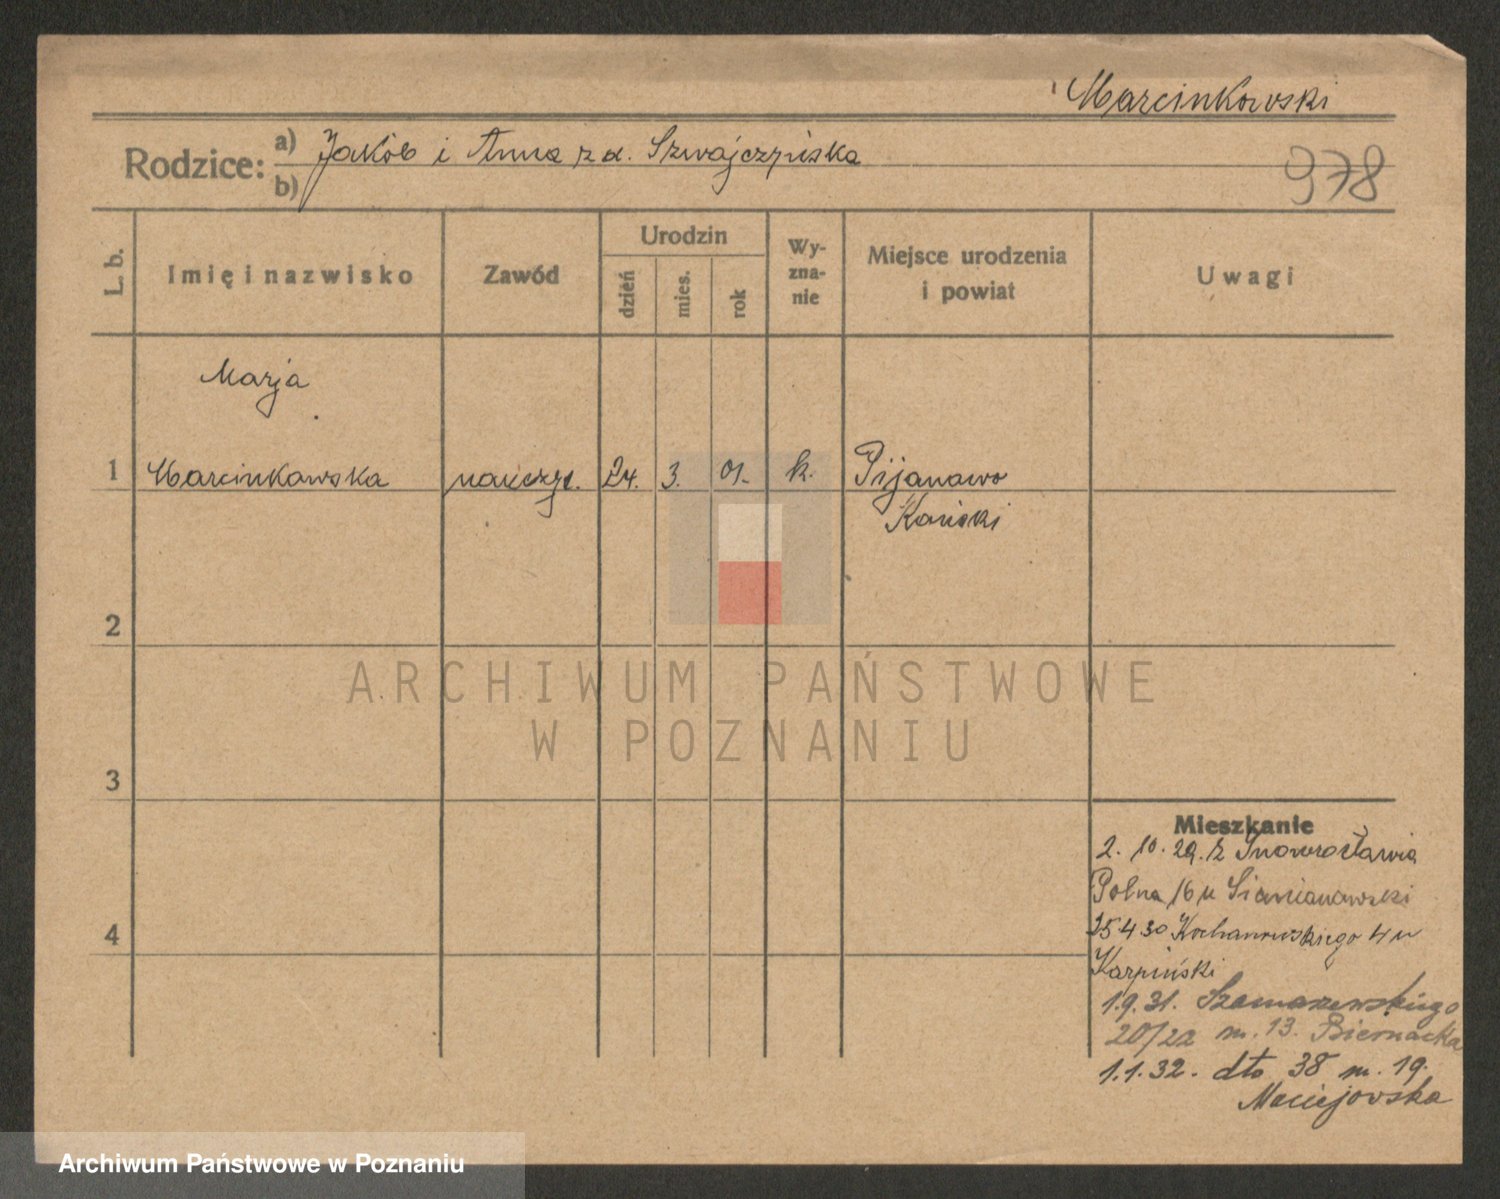 Marcinkowski
Rodzice: a) Jakób i Anna z d. Szwajczyńska
b)
978
L. b.
Imię i nazwisko
Zawód
Urodzin
dzień
mies.
rok
Wy-
zna-
nie
Miejsce urodzenia
i powiat
Uwagi
Marja
1 Marcinkowska nauczyc. 24. 3. 01. k. Pijanowo
Kański
2
ARCHIWUM PAŃSTWOWE
W POZNANIU
3
Mieszkanie
2. 10. 29. z Inowrocławia
Polna 16 u
25 4 30 Kochanowskiego 4 u
4
Karpiński
1.9.31. Szamarzewskiego
20/22 m. 13. Biernacka
1.1.32. dto 38 m. 19.
Maciejovska
Archiwum Państwowe w Poznaniu